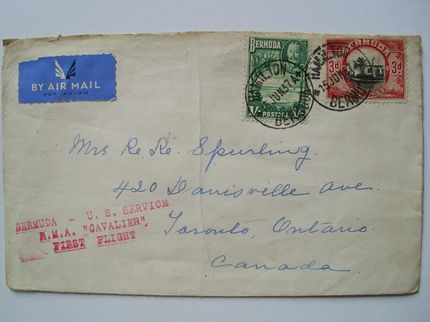 BY AIR MAIL
PAR AVION
BERMUDA
1/-
POSTAGE
1/-
BERMUDA
3d
3d
HAMILTON
BERMUDA
HAMILTON
BERMUDA
Mrs Re. Re. Spurling
420 Davisville Ave.
Toronto, Ontario
Canada.
BERMUDA - U.S. SERVICE
R.M.A. "CAVALIER"
FIRST FLIGHT